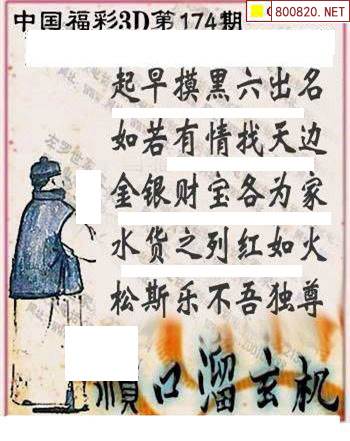 800820.NET
中国福彩3D第174期
起早摸黑六出名
如若有情找天边
金银财宝各为家
水货之列红如火
松斯乐不吾独尊
顺口溜玄机